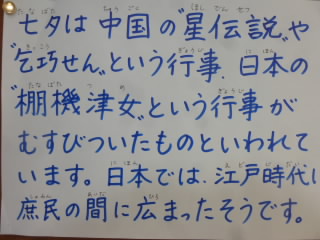 七夕は中国の"星伝説"や
"乞巧せん"という行事、日本の
"棚機津女"という行事が
むすびついたものといわれて
います。日本では、江戸時代に
庶民の間に広まったそうです。